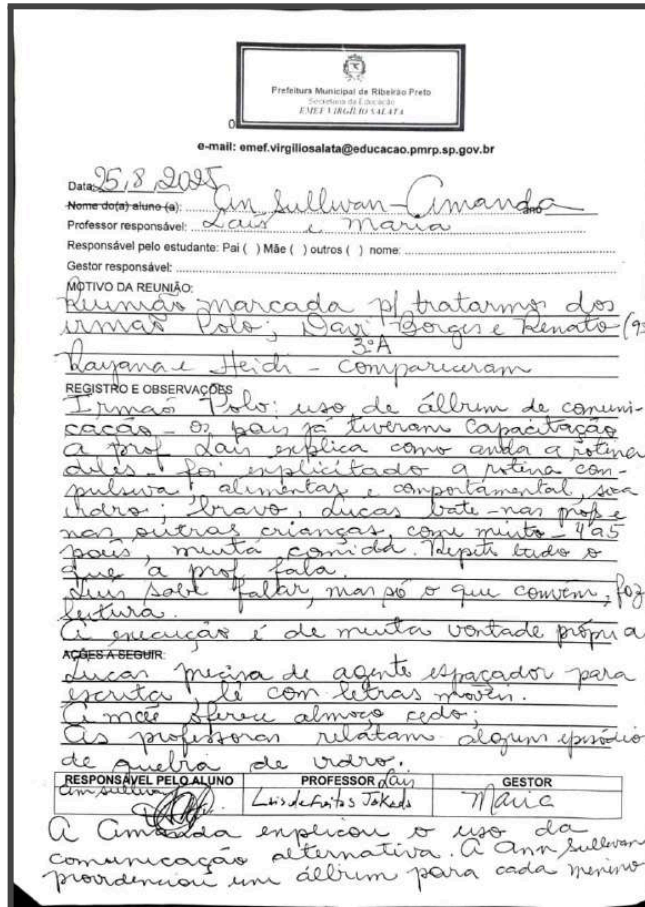 Prefeitura Municipal de Ribeirão Preto
Secretaria da Educação
EMEF VIRGÍLIO SALATA
e-mail: emef.virgiliosalata@educacao.pmrp.sp.gov.br
Data: 25,8,2025
Nome do(a) aluno (a): Ann Sullivan - Amanda
Professor responsável: Laís e Maria
Responsável pelo estudante: Pai ( ) Mãe ( ) outros ( ) nome:
Gestor responsável:
MOTIVO DA REUNIÃO:
Reunião marcada p/ tratarmos dos
irmão Polo; Davi Borges e Renato
3ºA
Rayana e Heidi - compareceram
REGISTRO E OBSERVAÇÕES
Irmão Polo: uso de álbum de comuni-
cação - os pais já tiveram capacitação
A prof Lais explica como anda a rotina
deles - foi explicitado a rotina com-
pulsiva, alimentar e comportamental,
vidro; bravo, Lucas bate - nas profs e
nas outras crianças, come muito - 4 a 5
pães, muita comida. Repete tudo o
que a prof fala.
Luis sabe falar, mas só o que convém, faz
leitura.
A execução é de muita vontade própria
AÇÕES A SEGUIR:
Lucas precisa de agente espaçador para
escrita, lê com letras móveis.
A mãe oferece almoço cedo;
As professoras relatam algum episódio
de quebra de vidro.
RESPONSÁVEL PELO ALUNO PROFESSOR Lais GESTOR
Ann Sullivan de Freitas Maria
A Amanda explicou o uso da
comunicação alternativa. A Ann Sullivan
providenciou um álbum para cada menino